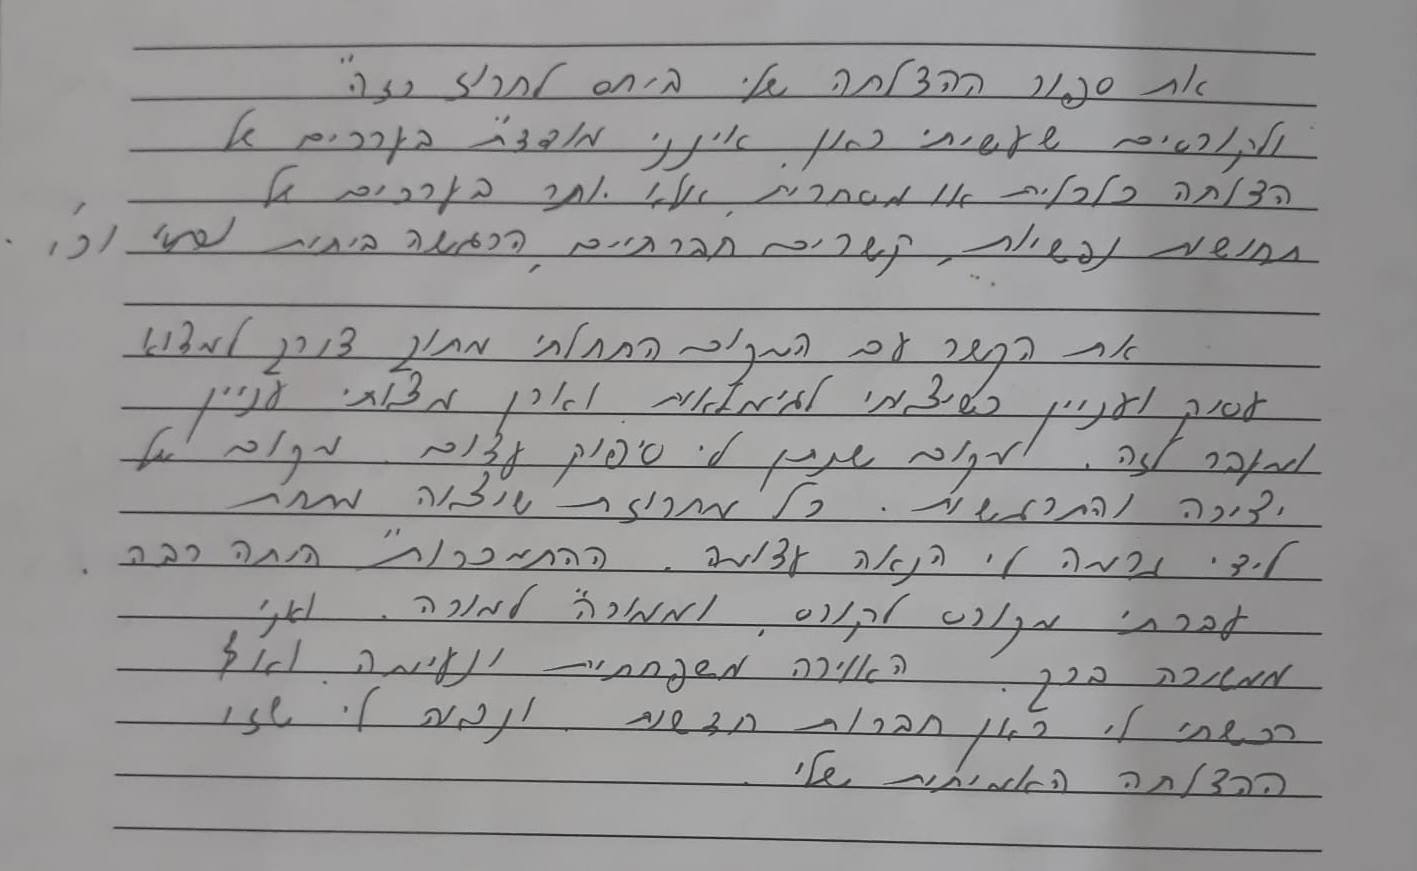 את סיפור ההצלחה שלי ביחס לחרוז כזה"
ולקורסים שעשיתי כאן, אינני מודדת בערכים של
הצלחה כלכלית או מסחרית אלא יותר בערכים של
תחושות נפשיות, קשרים חברתיים, הרגשה ביתית וכו'.
את הקשר עם המקום התחלתי מתוך צורך למצוא
עסוק ועניין כשיצאתי לגימלאות ואכן מצאתי עניין
ומעבר לזה. מקום שנתן לי סיפוק עצום. מקום של
יצירה והתרגשות. כל מחרוזת שיצאה מתחת
לידי גרמה לי הנאה עצומה. ההתמכרות" היתה רבה.
עברתי מקורס לקורס, וממורה למורה. ואני
מאושרה בכך. האוירה משפחתית ונעימה ואף
רכשתי לי כאן חברות חדשות. ונדמה לי שזו
ההצלחה האמיתית שלי.